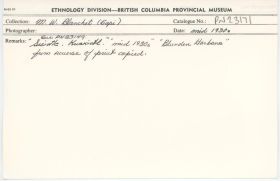 ETHNOLOGY DIVISION—BRITISH COLUMBIA PROVINCIAL MUSEUM
Collection: M. W. Blanchet (Capi) Catalogue No.: PN 2317
Photographer: Date: mid 1930s
Remarks: "Kwakiutl." "mid 1930s" "Blunden Harbour"
from reverse of print copied.